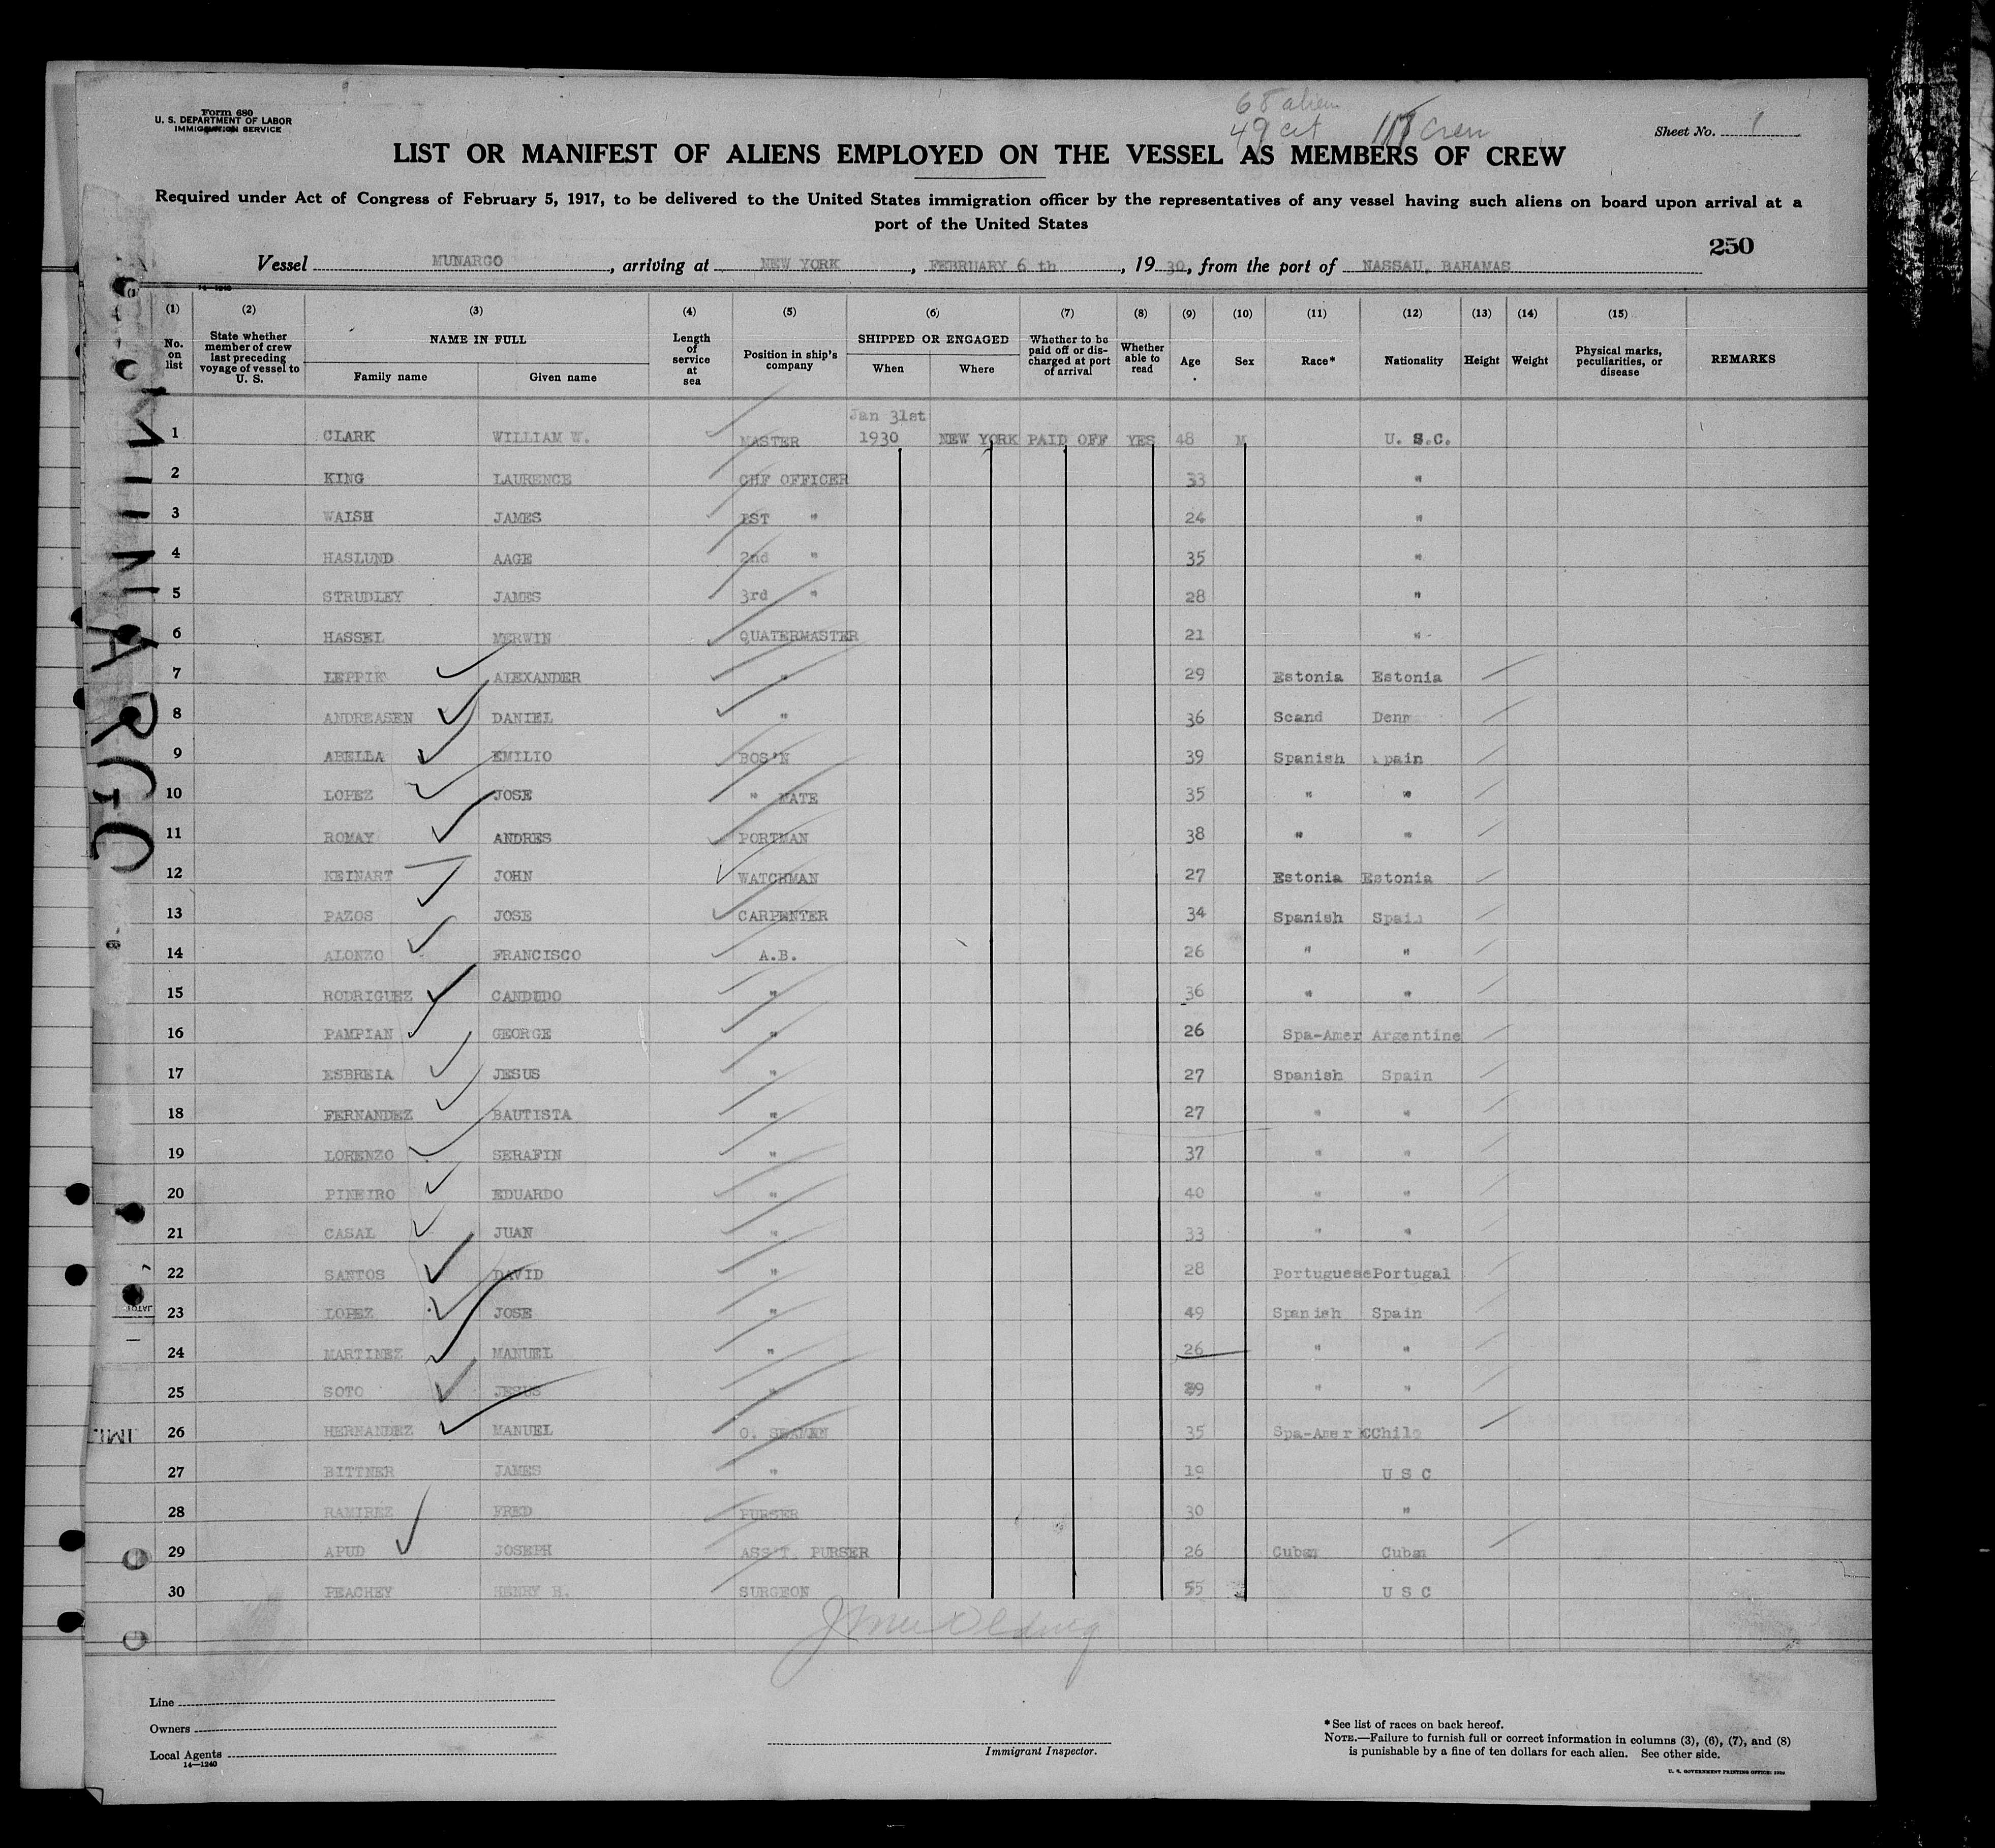 68 alien
49 cit 117 Crew
Form 680
U. S. DEPARTMENT OF LABOR
IMMIGRATION SERVICE
Sheet No. 1
LIST OR MANIFEST OF ALIENS EMPLOYED ON THE VESSEL AS MEMBERS OF CREW
Required under Act of Congress of February 5, 1917, to be delivered to the United States immigration officer by the representatives of any vessel having such aliens on board upon arrival at a
port of the United States
250
Vessel MUNARGO, arriving at NEW YORK, FEBRUARY 6 th, 19 30, from the port of NASSAU, BAHAMAS
14-1240
(1) (2) (3) (4) (5) (6) (7) (8) (9) (10) (11) (12) (13) (14) (15)
No. on list State whether member of crew last preceding voyage of vessel to U. S. NAME IN FULL Family name Given name Length of service at sea Position in ship's company SHIPPED OR ENGAGED When Where Whether to be paid off or discharged at port of arrival Whether able to read Age Sex Race* Nationality Height Weight Physical marks, peculiarities, or disease REMARKS
Jan 31st
1 CLARK WILLIAM W. MASTER 1930 NEW YORK PAID OFF YES 48 M U. S.C.
2 KING LAURENCE CHF OFFICER 33 "
3 WAlSH JAMES 1ST " 24 "
4 HASLUND AAGE 2nd " 35 "
5 STRUDLEY JAMES 3rd " 28 "
6 HASSEL MERWIN QUATERMASTER 21 "
7 LEPPIK ALEXANDER " 29 Estonia Estonia
8 ANDREASEN DANIEL " 36 Scand Denm
9 ABELLA EMILIO BOS'N 39 Spanish Spain
10 LOPEZ JOSE " MATE 35 " "
11 ROMAY ANDRES PORTMAN 38 " "
12 KEINART JOHN WATCHMAN 27 Estonia Estonia
13 PAZOS JOSE CARPENTER 34 Spanish Spain
14 ALONZO FRANCISCO A.B. 26 " "
15 RODRIGUEZ CANDUDO " 36 " "
16 PAMPIAN GEORGE " 26 Spa-Amer Argentine
17 ESBREIA JESUS " 27 Spanish Spain
18 FERNANDEZ BAUTISTA " 27 " "
19 LORENZO SERAFIN " 37 " "
20 PINEIRO EDUARDO " 40 " "
21 CASAL JUAN " 33 " "
22 SANTOS DAVID " 28 Portuguese Portugal
23 LOPEZ JOSE " 49 Spanish Spain
24 MARTINEZ MANUEL " 26 " "
25 SOTO JESUS " 29 " "
26 HERNANDEZ MANUEL O. SEAMAN 35 Spa-Amer Chile
27 BITTNER JAMES " 19 U S C
28 RAMIREZ FRED PURSER 30 "
29 APUD JOSEPH ASS'T. PURSER 26 Cuban Cuban
30 PEACHEY HENRY H. SURGEON 55 U S C
Line
Owners
Local Agents
14—1240
Immigrant Inspector.
*See list of races on back hereof.
NOTE.—Failure to furnish full or correct information in columns (3), (6), (7), and (8)
is punishable by a fine of ten dollars for each alien. See other side.
U. S. GOVERNMENT PRINTING OFFICE:
MUNARGO